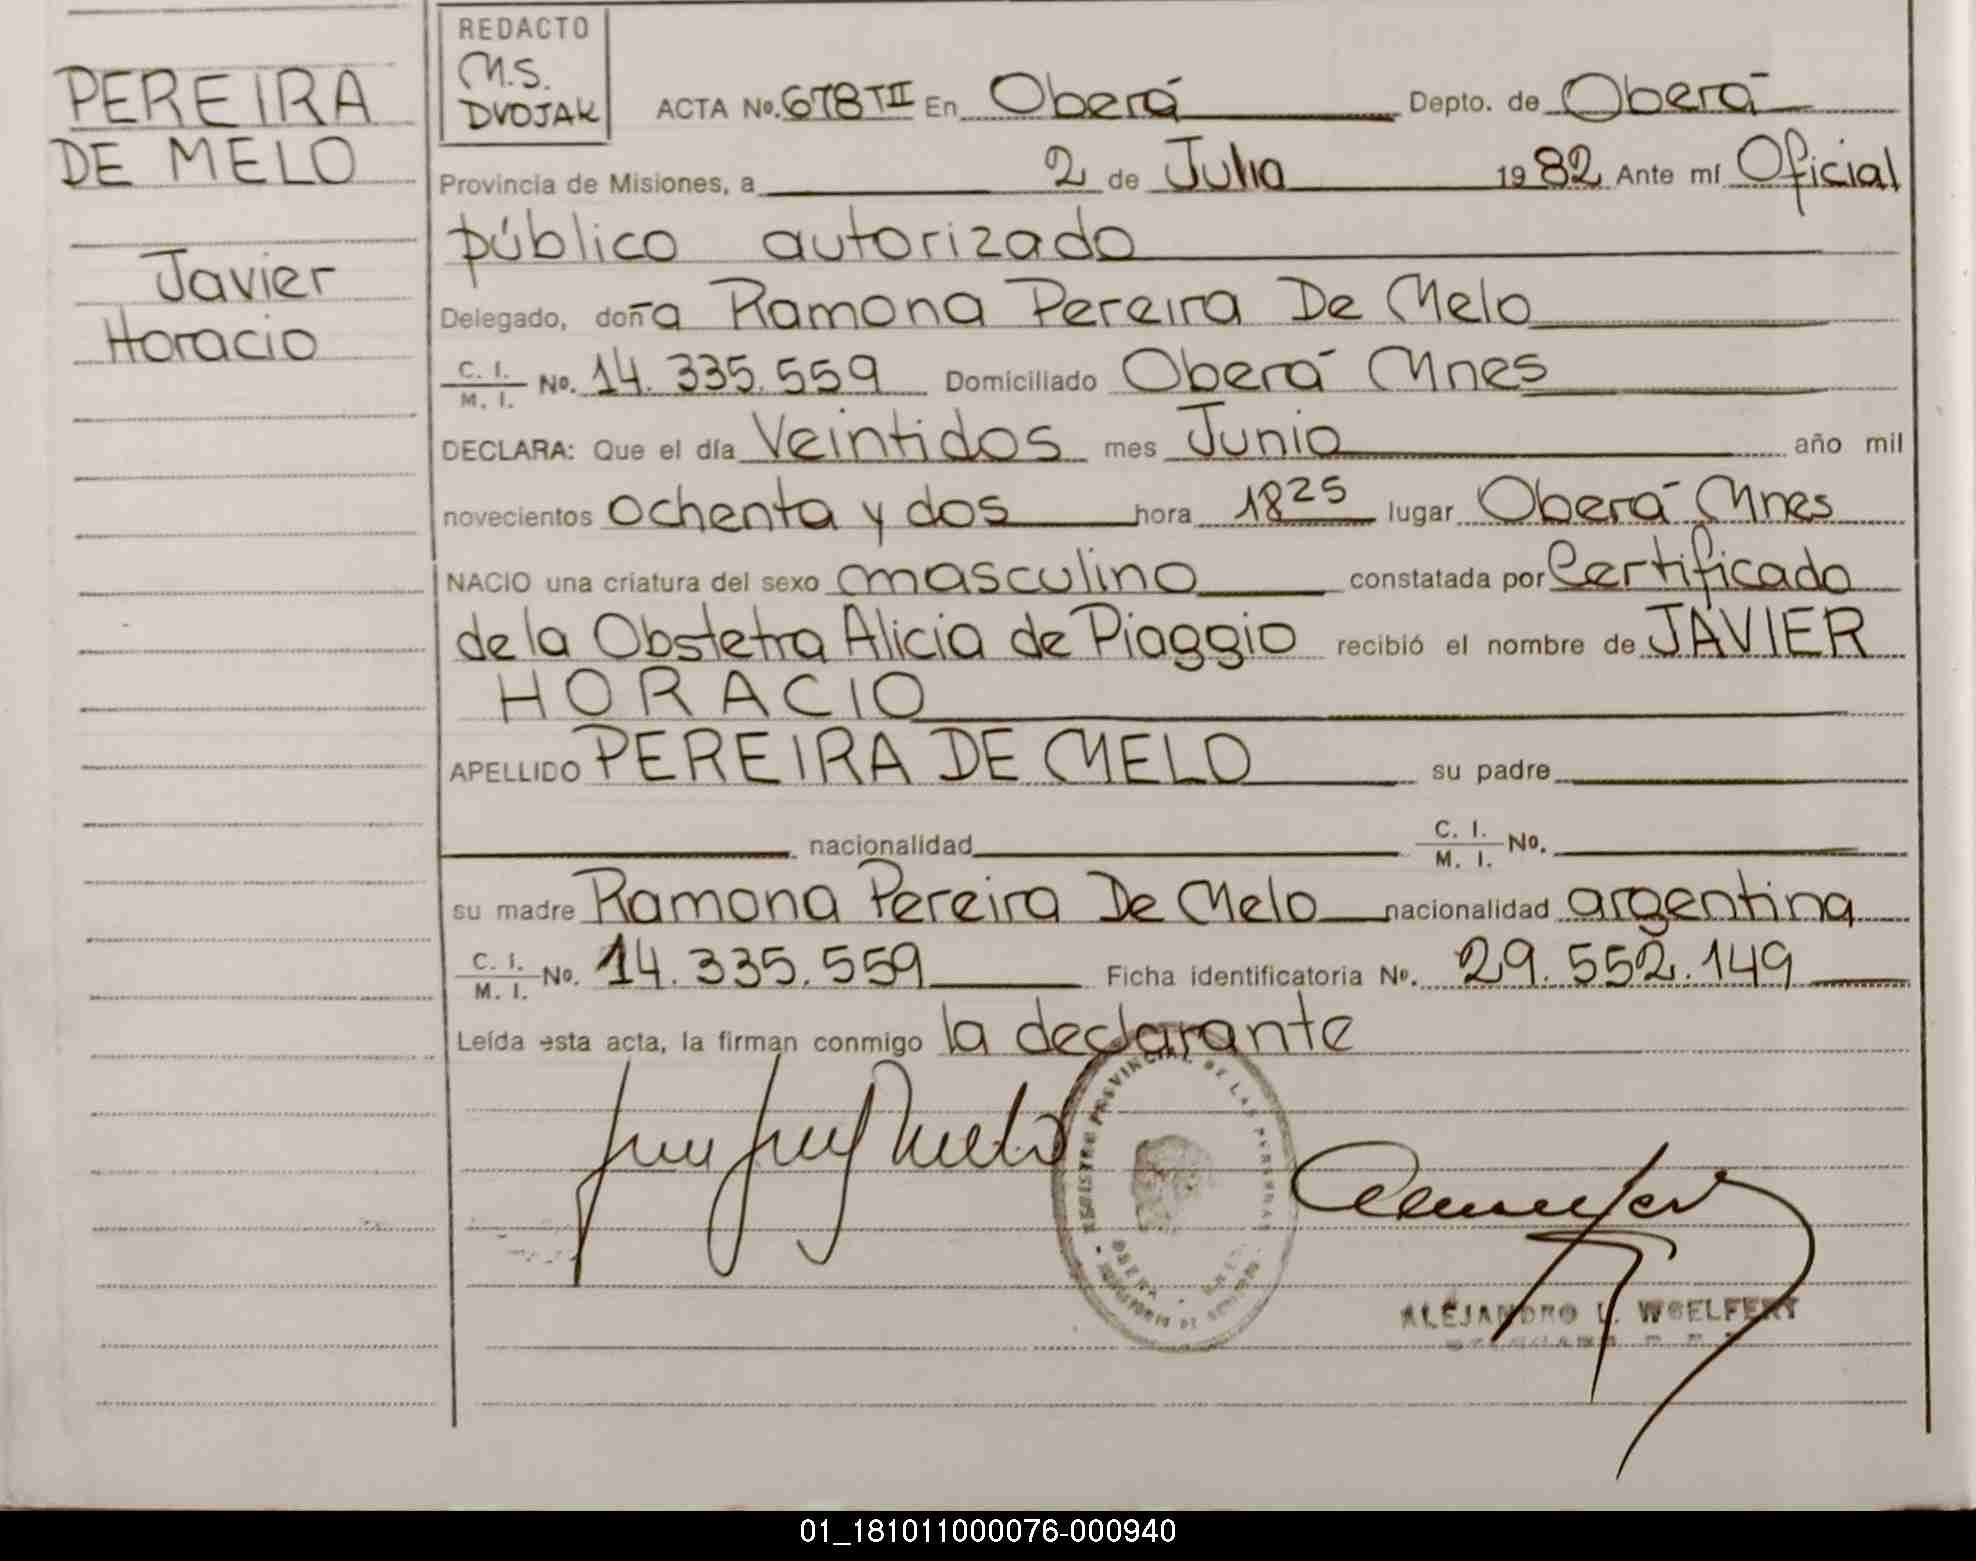 PEREIRA
DE MELO
Javier
Horacio
REDACTO
M.S.
DVOJAK
ACTA No. 678 TII En Oberá Depto. de Oberá
Provincia de Misiones, a 2 de Julio 1982 Ante mí Oficial
público autorizado
Delegado, doña Ramona Pereira De Melo
C. I. / M. I. No. 14.335.559 Domiciliado Oberá Mnes
DECLARA: Que el día Veintidos mes Junio año mil
novecientos ochenta y dos hora 18 25 lugar Oberá Mnes
NACIO una criatura del sexo masculino constatada por Certificado
de la Obstetra Alicia de Piaggio recibió el nombre de JAVIER
HORACIO
APELLIDO PEREIRA DE MELO su padre
nacionalidad C. I. / M. I. No.
su madre Ramona Pereira De Melo nacionalidad argentina
C. I. / M. I. No. 14.335.559 Ficha identificatoria No. 29.552.149
Leída esta acta, la firman conmigo la declarante
REGISTRO PROVINCIAL DE LAS PERSONAS
ALEJANDRO L. WOELFERT
01_181011000076-000940